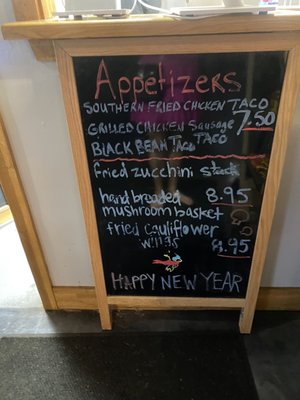 Appetizers
SOUTHERN FRIED CHICKEN TACO
GRILLED CHICKEN Sausage 7.50
TACO
BLACK BEAN Taco
Fried zucchini
hand breaded 8.95
mushroom basket
fried cauliflower
wings 8.95
HAPPY NEW YEAR